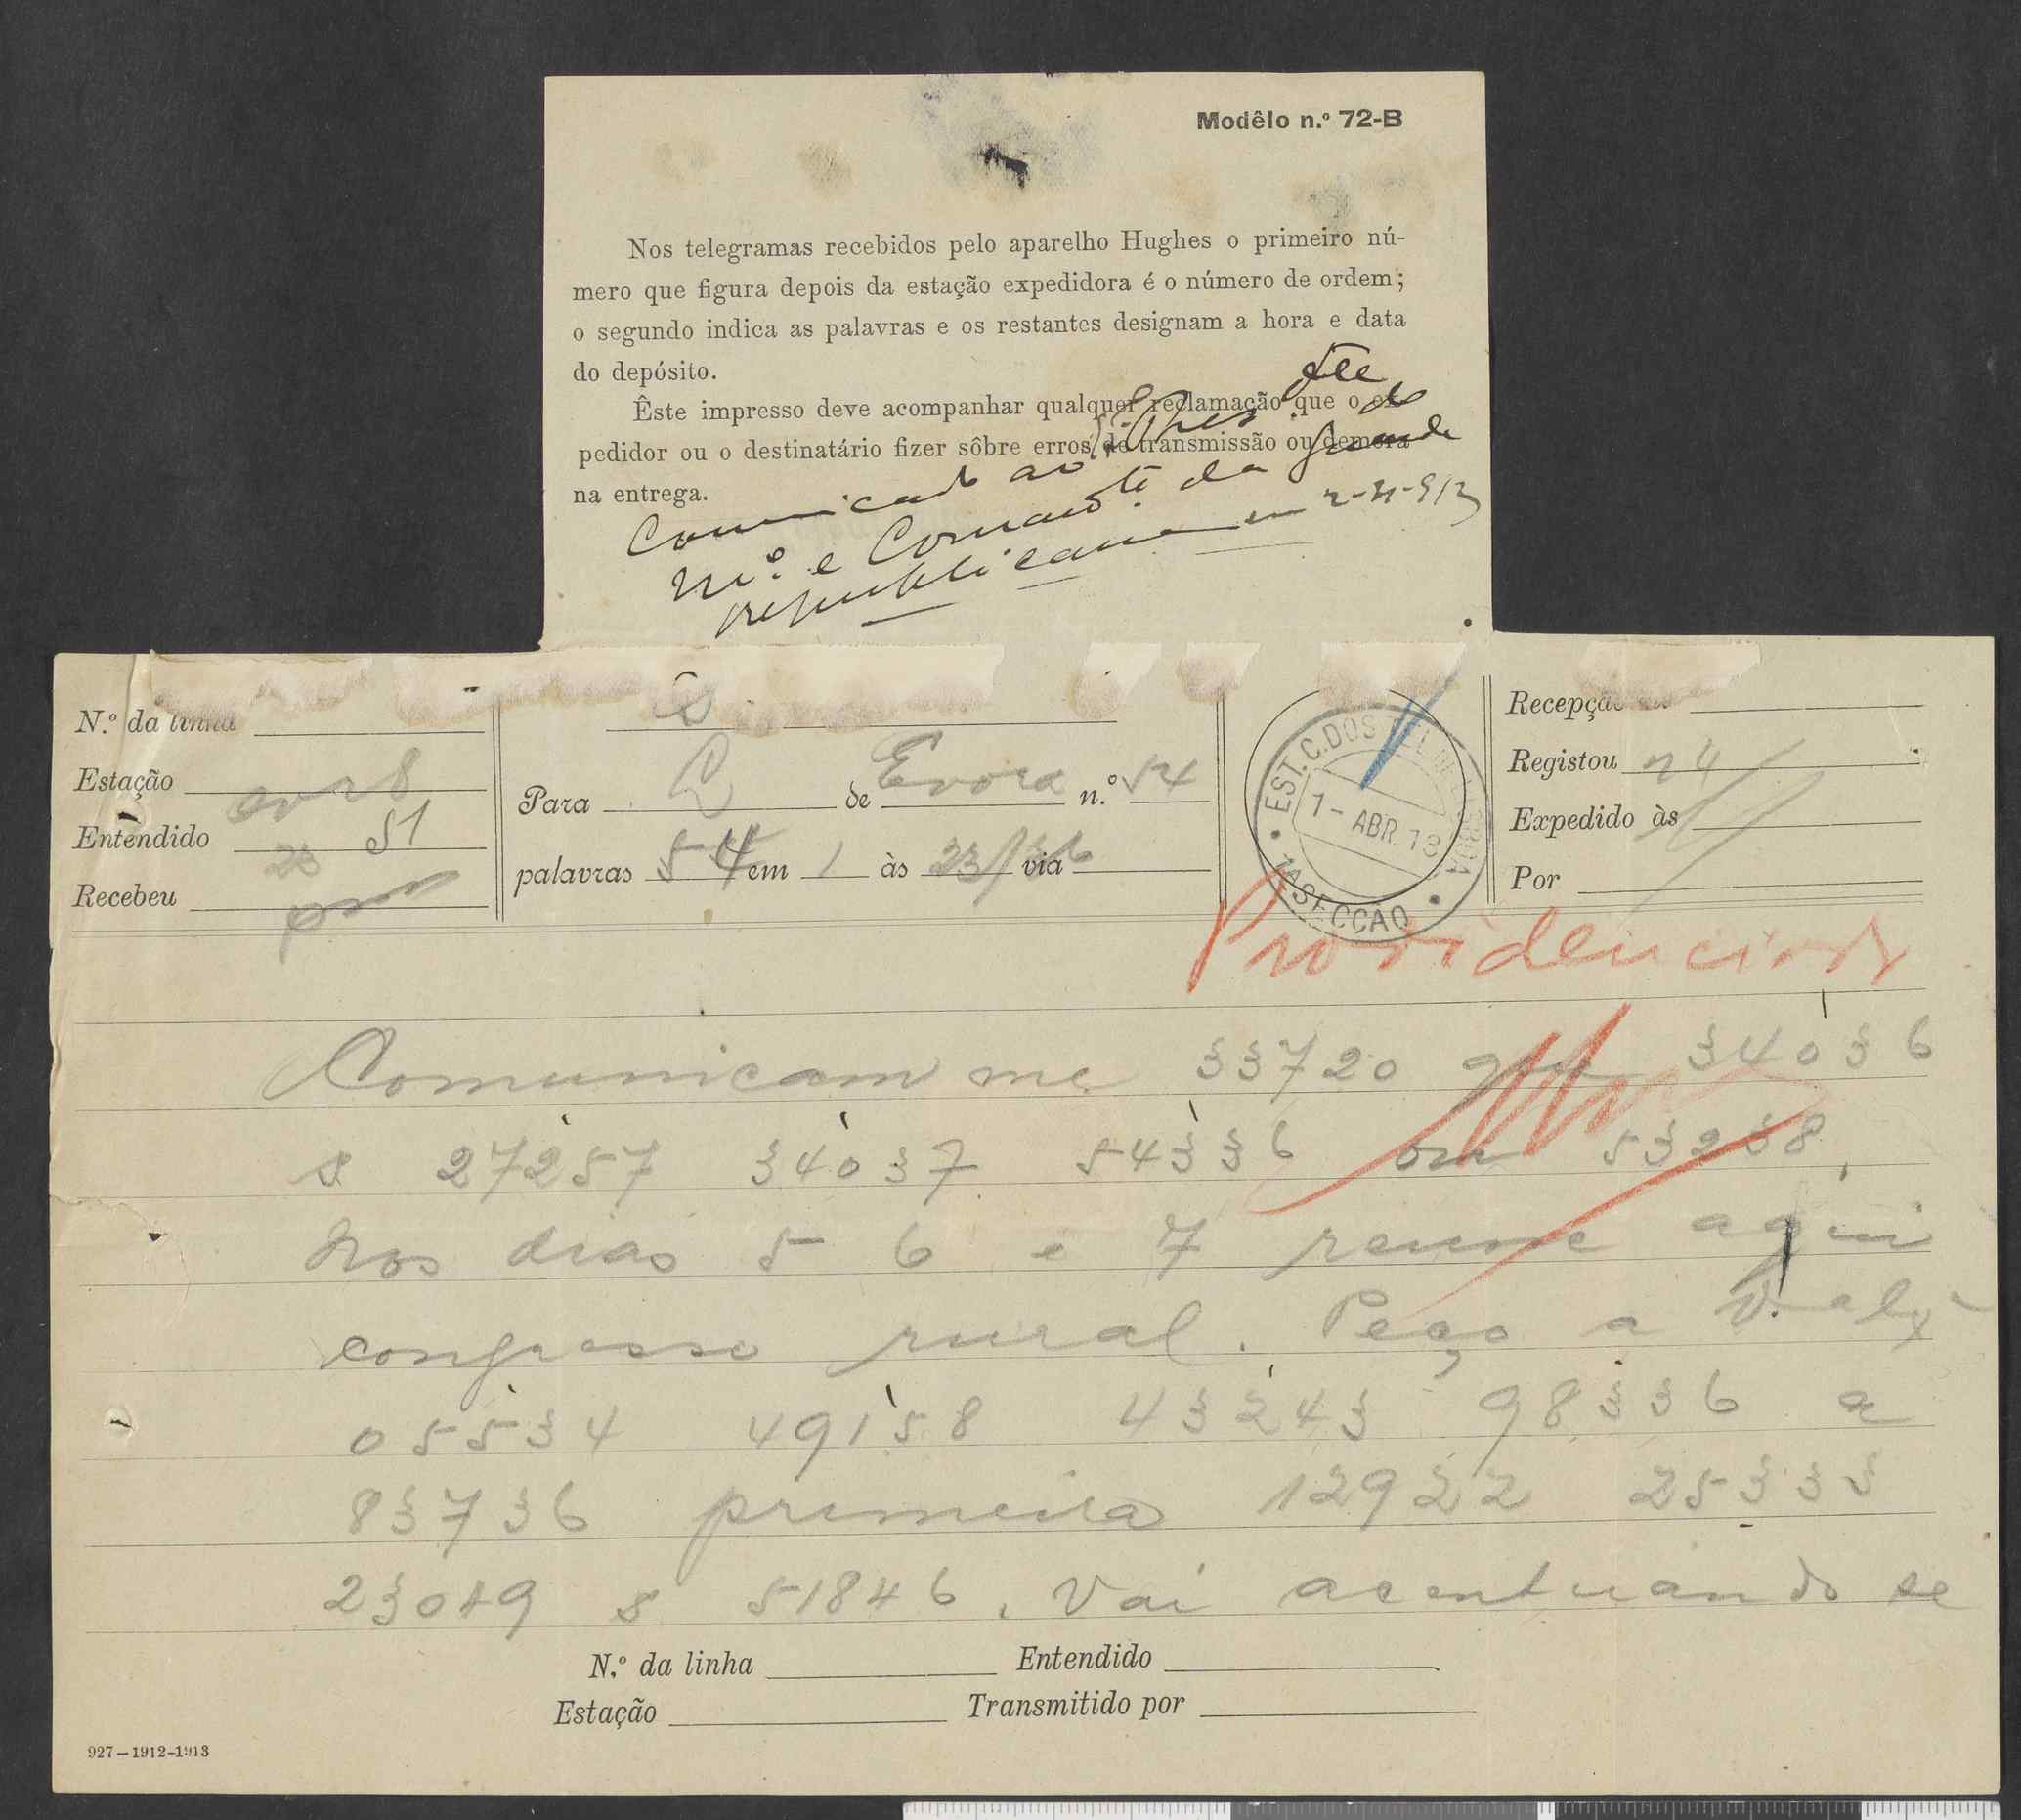 Modêlo n.º 72-B
Nos telegramas recebidos pelo aparelho Hughes o primeiro nú-
mero que figura depois da estação expedidora é o número de ordem;
o segundo indica as palavras e os restantes designam a hora e data
do depósito.
Êste impresso deve acompanhar qualquer reclamação que o ex-
pedidor ou o destinatário fizer sôbre erros de transmissão ou demora
na entrega.
Comunicado ao Pres do
m.º e Comandte da guarda
republicana em 2-4-913
N.º da linha
Estação
Entendido 51
Recebeu
Para L de Evora n.º 54
palavras 54 em 1 às 23/36 via
EST. C. DOS TEL. DE LISBOA
1-ABR.13
1A SECCÃO
Recepção
Registou n 4
Expedido às
Por
Providenciado
Comunicam me 33720 que 34036
s 27257 34037 54336 em 53238.
Nos dias 5 6 e 7 reune aqui
congresso rural. Peço a V. alxa
05534 49158 43243 98336 a
83736 primeira 12922 25333
23019 s 51846. Vai acentuando se
N.º da linha Entendido
Estação Transmitido por
927-1912-1913